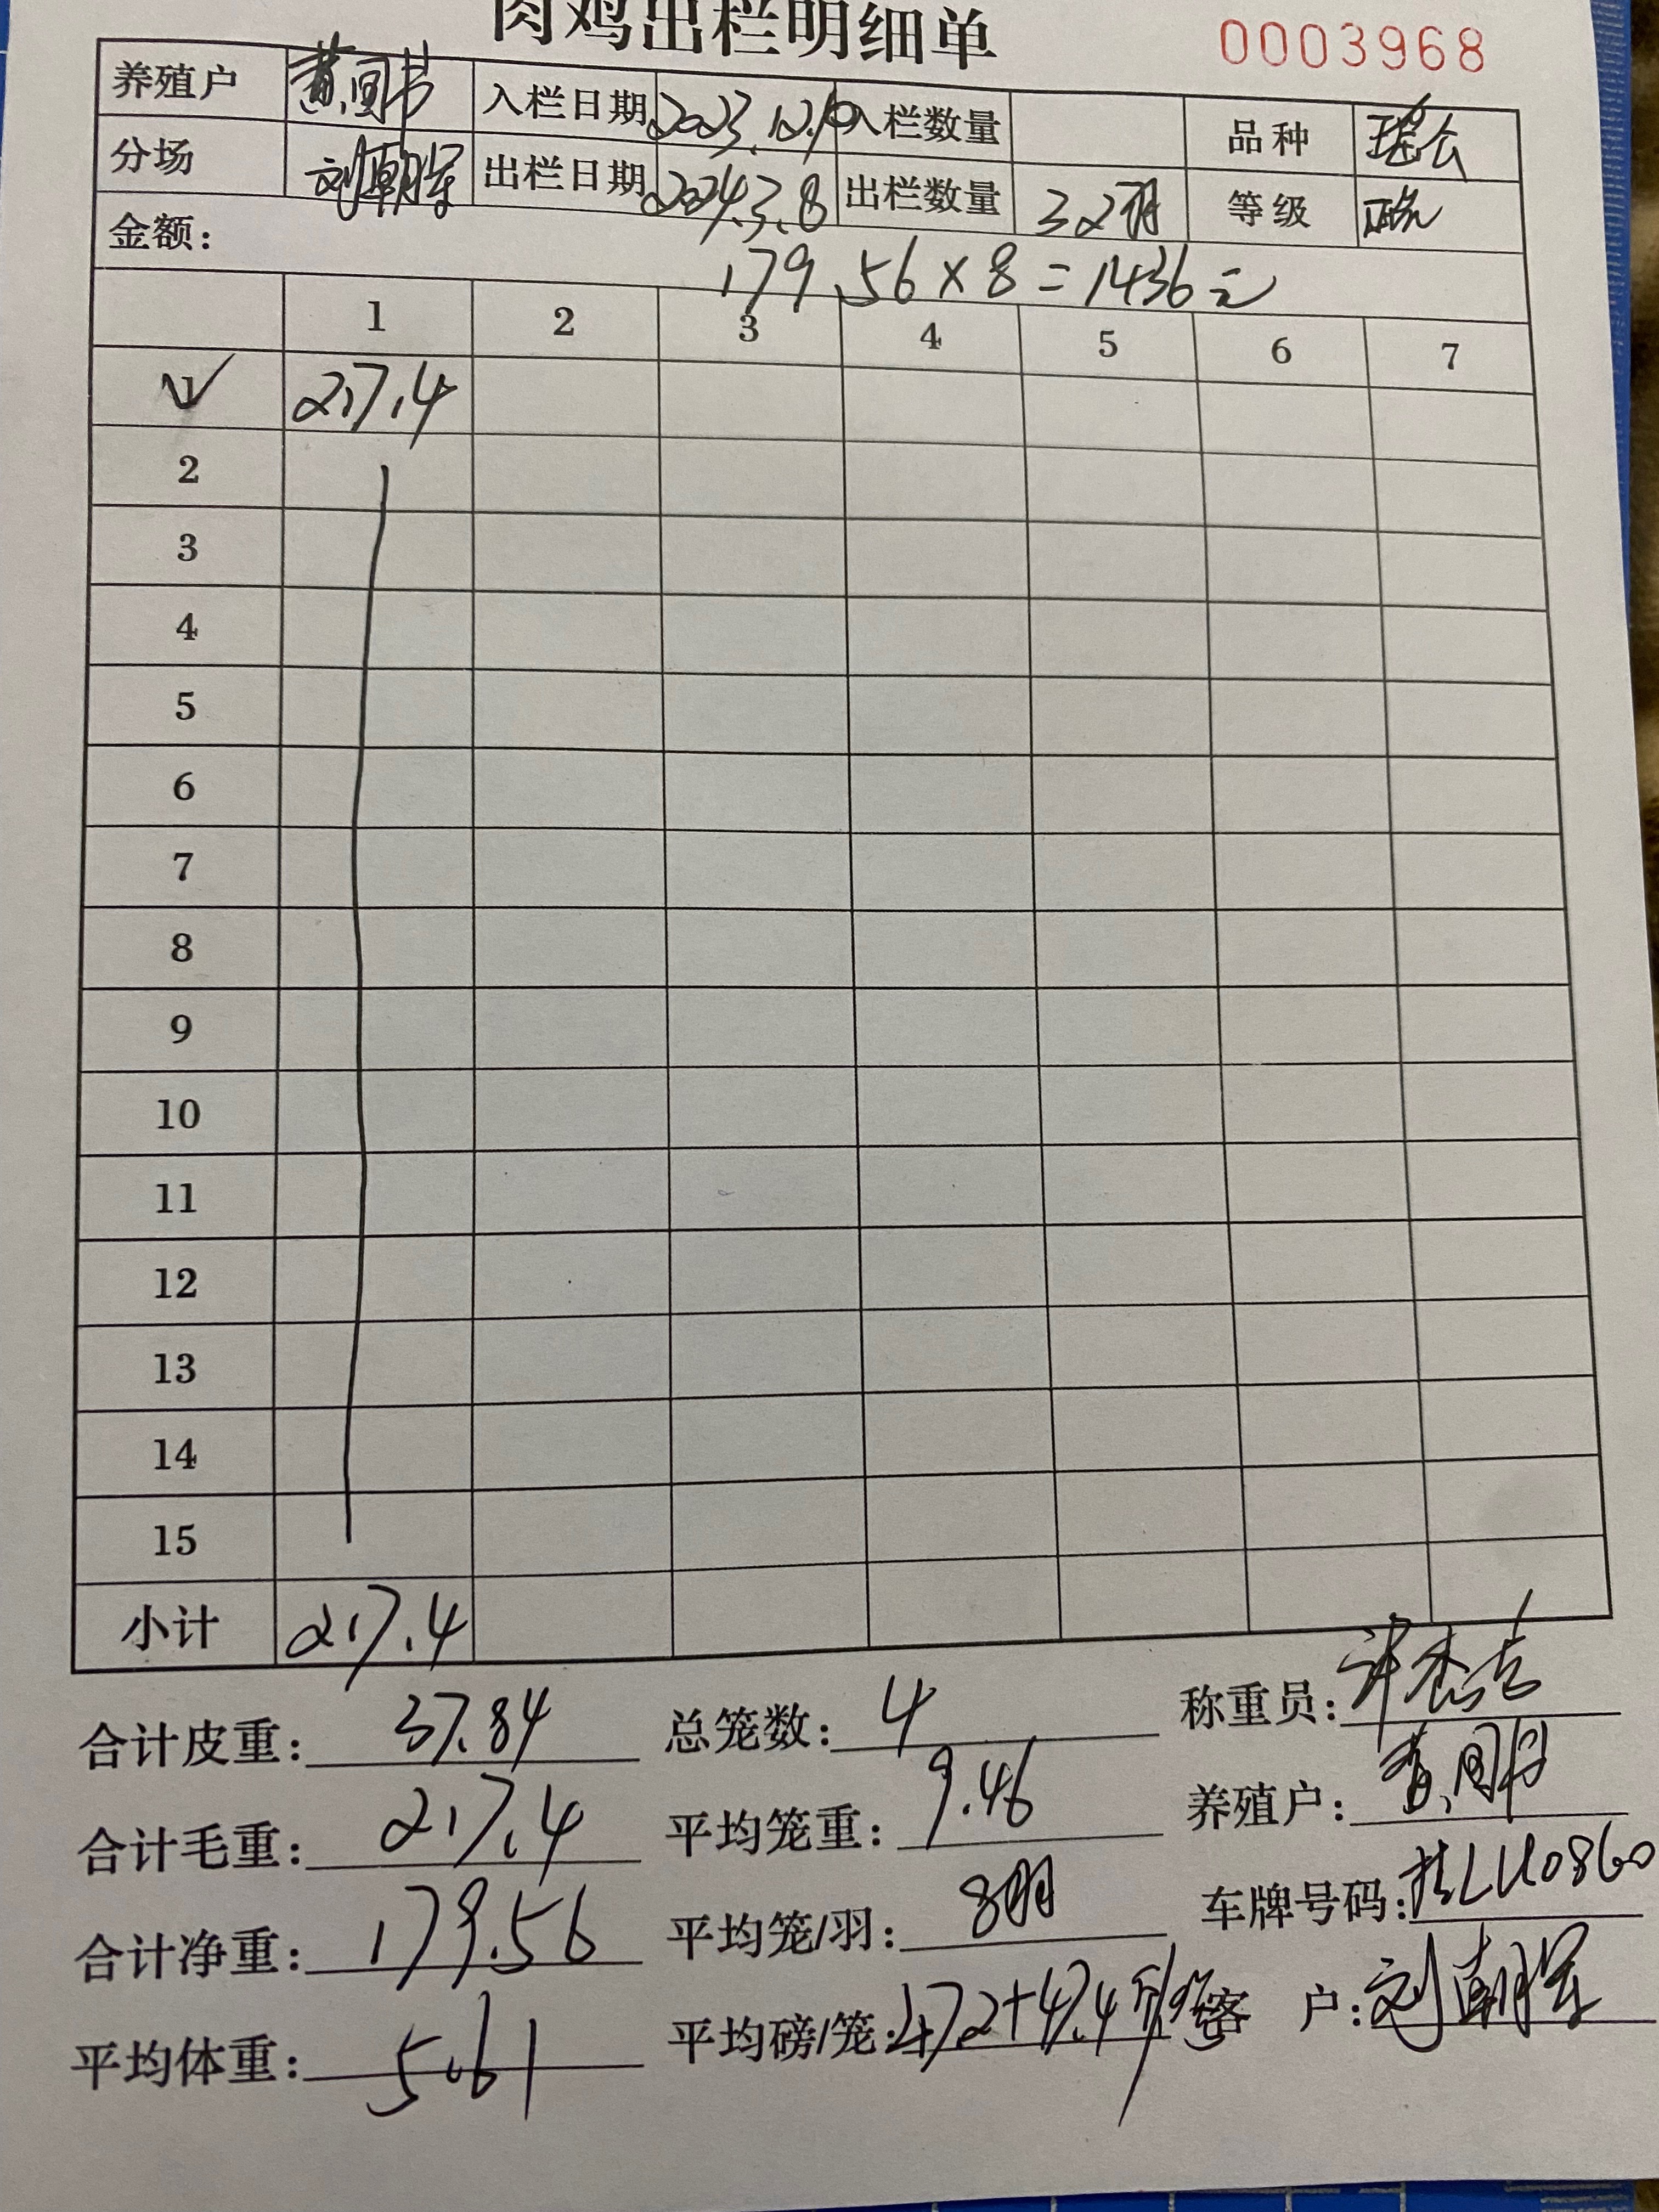 肉鸡出栏明细单 0003968
养殖户 入栏日期 2023.12.10 入栏数量 品种
分场 刘朝军 出栏日期 2024.3.8 出栏数量 32羽 等级
金额: 179.56×8=1436元
1 2 3 4 5 6 7
1 217.4
2
3
4
5
6
7
8
9
10
11
12
13
14
15
小计 217.4
合计皮重: 37.84 总笼数: 4 称重员:
合计毛重: 217.4 平均笼重: 9.46 养殖户:
合计净重: 179.56 平均笼/羽: 8羽 车牌号码: 桂LU0860
平均体重: 5.61 平均磅/笼: 47.2+47.4 客户: 刘朝军